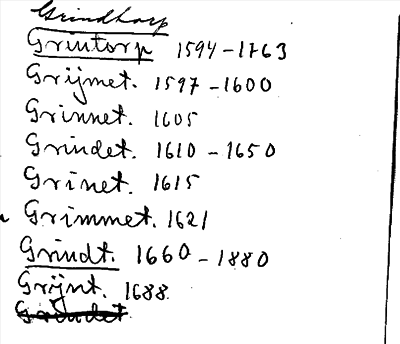 Grindtorp
Grintorp 1594-1763
Grijmet. 1597-1600
Grinnet. 1605
Grindet. 1610-1650
Grinet. 1615
Grimmet. 1621
Grindt. 1660-1880
Grijnt. 1688.
Grindet